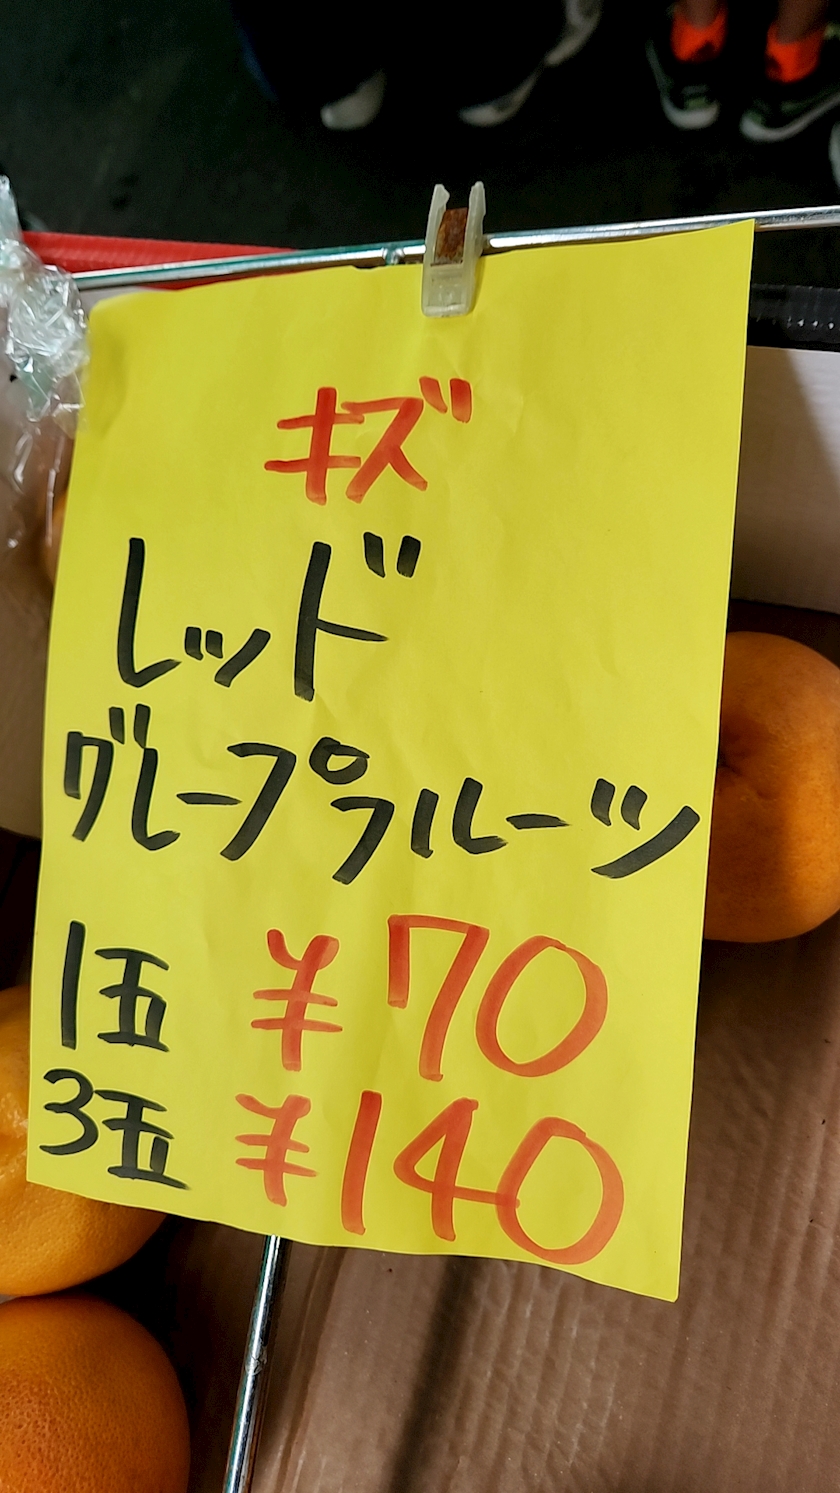 キズ
レッド
グレープフルーツ
1玉 ¥70
3玉 ¥140